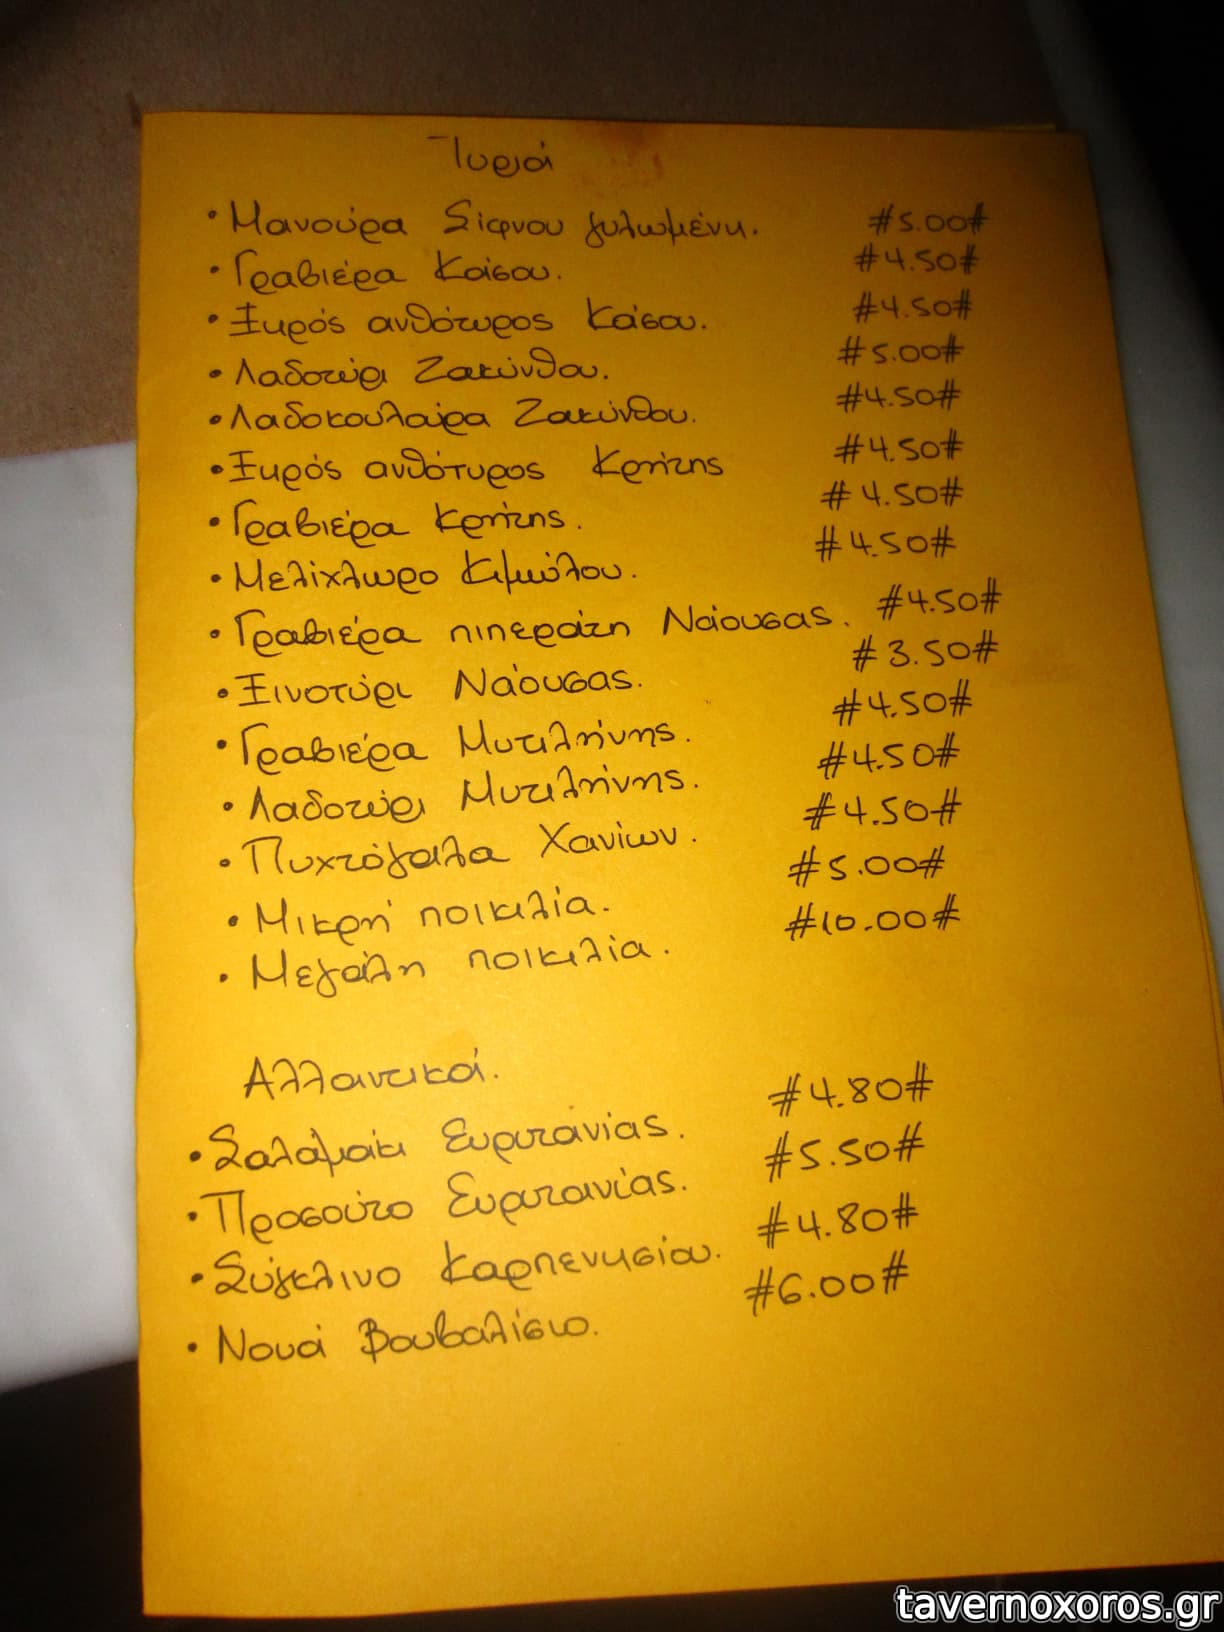 Τυριά
• Μανούρα Σίφνου γυλωμένη. #5.00#
• Γραβιέρα Κάσου. #4.50#
• Ξηρός ανθότυρος Κάσου. #4.50#
• Λαδοτύρι Ζακύνθου. #5.00#
• Λαδοκουλούρα Ζακύνθου. #4.50#
• Ξηρός ανθότυρος Κρήτης #4.50#
• Γραβιέρα Κρήτης. #4.50#
• Μελίχλωρο Κιμώλου. #4.50#
• Γραβιέρα πιπεράτη Νάουσας. #4.50#
• Ξινοτύρι Νάουσας. #3.50#
• Γραβιέρα Μυτιλήνης. #4.50#
• Λαδοτύρι Μυτιλήνης. #4.50#
• Πυχτόγαλα Χανίων. #4.50#
• Μικρή ποικιλία. #5.00#
• Μεγάλη ποικιλία. #10.00#
Αλλαντικά.
• Σαλαμάκι Ευρυτανίας. #4.80#
• Προσούτο Ευρυτανίας. #5.50#
• Σύγκλινο Καρπενησίου. #4.80#
• Νουά Βουβαλίσιο. #6.00#
tavernoxoros.gr